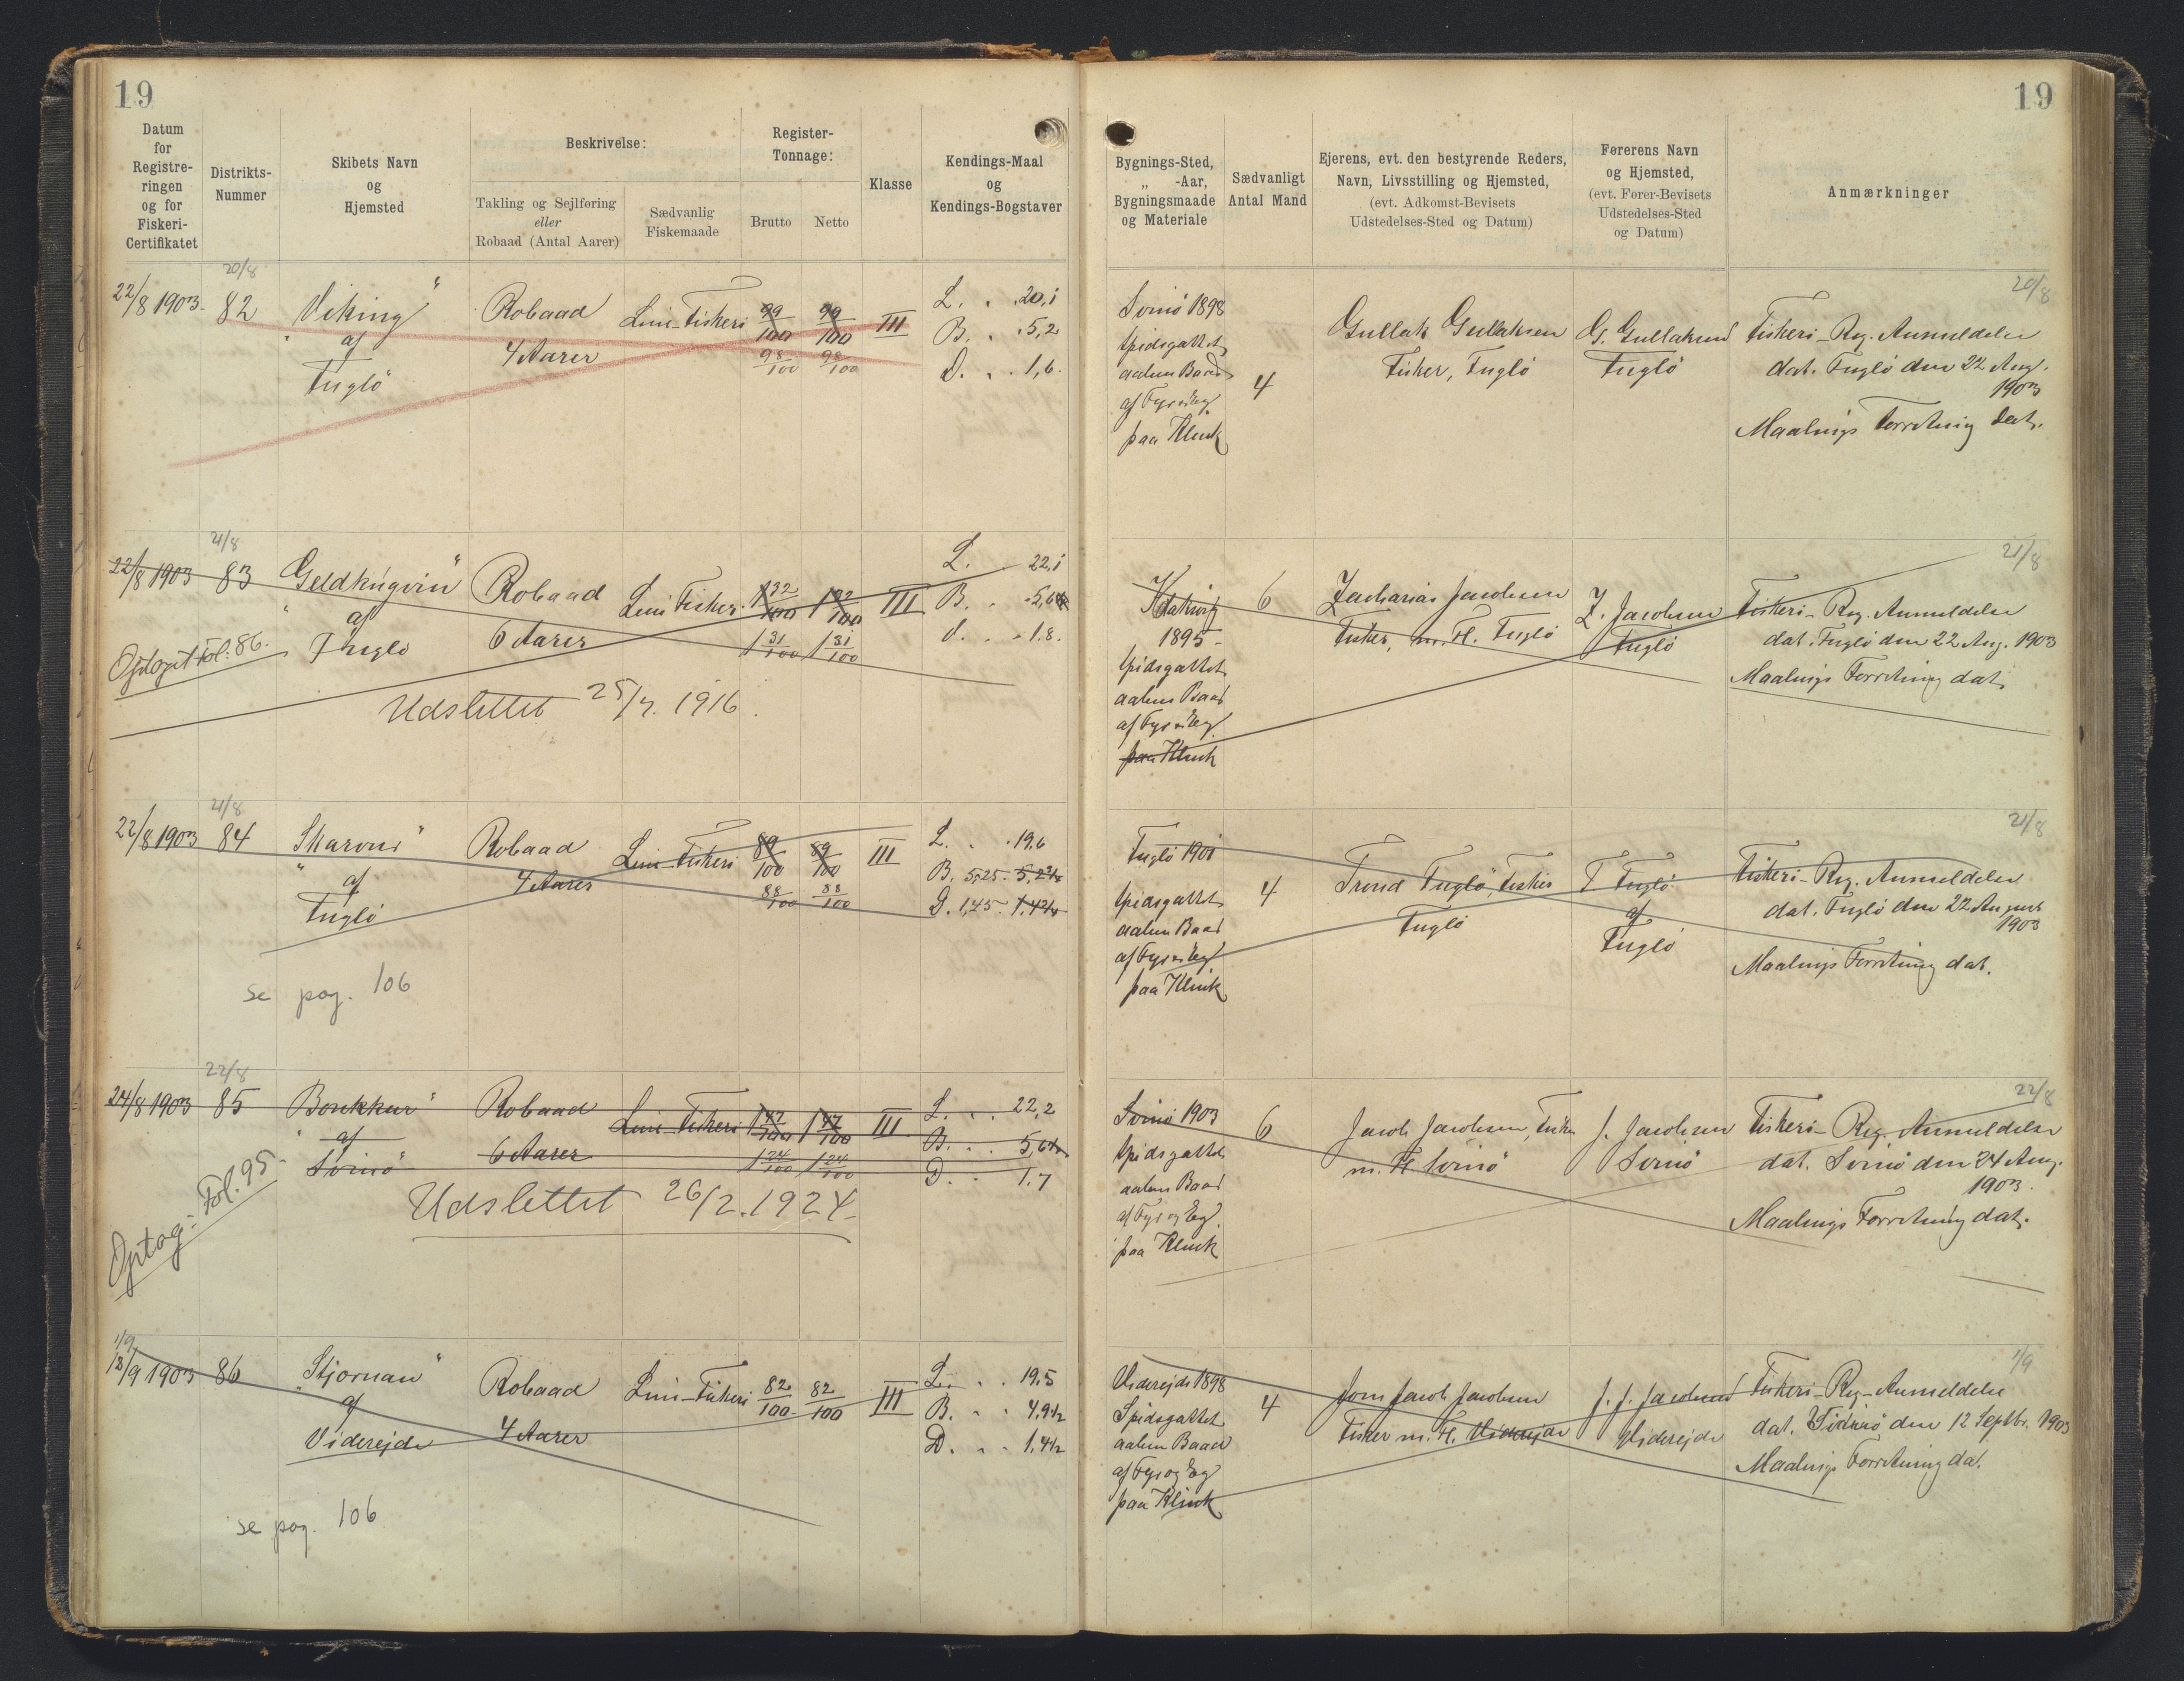 19
19
Datum
for
Registre-
ringen
og for
Fiskeri-
Certifikatet
Distrikts-
Nummer
Skibets Navn
og
Hjemsted
Beskrivelse:
Takling og Sejlføring
eller
Robaad (Antal Aarer)
Sædvanlig
Fiskemaade
Register-
Tonnage:
Brutto
Netto
Klasse
Kendings-Maal
og
Kendings-Bogstaver
Bygnings-Sted,
„ -Aar,
Bygningsmaade
og Materiale
Sædvanligt
Antal Mand
Ejerens, evt. den bestyrende Reders,
Navn, Livsstilling og Hjemsted,
(evt. Adkomst-Bevisets
Udstedelses-Sted og Datum)
Førerens Navn
og Hjemsted,
(evt. Fører-Bevisets
Udstedelses-Sted
og Datum)
Anmærkninger
20/8
22/8 1903. 82
„Viking“
af
Fuglö
Robaad
4 Aarer
Line-Fiskeri
99/100 99/100
98/100 98/100
III
L. . . 20,1
B. . . 5,2
D. . . 1,6.
Svinö 1898
spidsgattet
aaben Baad
af Fyr og Eg
paa Klink
4
Gullak Gullaksen
Fisker, Fuglö
G. Gullaksen
Fuglö
20/8
Fiskeri-Reg. Anmeldelse
dat. Fuglö den 22 Aug.
1903
Maalings Forretning dat.
21/8
22/8 1903 83
„Geldkúgvin“
af
Fuglö
Optaget Fol: 86.
Robaad
6 Aarer
Line Fisker.
1 32/100 1 32/100
1 31/100 1 31/100
III
L. . 22,1
B. . . 5,6
D. . . 1.8.
Udslettet 25/7. 1916.
Klaksvig
1895
spidsgattet
aaben Baad
af Fyr og Eg.
paa Klink
6
Zacharias Jacobsen
Fisker, m. H. Fuglö
Z. Jacobsen
Fuglö
21/8
Fiskeri-Reg. Anmeldelse
dat. Fuglö den 22 Aug. 1903
Maalings Forretning dat.
21/8
22/8 1903 84
„Skarvur“
af
Fuglö
Robaad
4 Aarer
Line-Fiskeri
89/100 89/100
88/100 88/100
III
L. . . 19.6
B. 5,25. 5,2 1/2
D. 1,45. 1,4 1/2
se pag. 106
Fuglö 1901
spidsgattet
aaben Baad
af Fyr og Eg
paa Klink
4
Trond Fuglö, Fisker
Fuglö
T Fuglö
af
Fuglö
21/8
Fiskeri-Reg. Anmeldelse
dat. Fuglö den 22 August
1903
Maalings Forretning dat.
22/8
24/8 1903 85
af
Svinö
Optag: Fol. 95.
Robaad
6 Aarer
Line Fiskeri
1 47/100 1 47/100
1 24/100 1 24/100
III
L. . . 22,2
B. . . 5,6 1/2
D. . . 1.7
Udslettet 26/2. 1924.
Svinö 1903
spidsgattet
aaben Baad
af Fyr og Eg.
paa Klink
6
Jacob Jacobsen, Fisker
m. H Svinö
J. Jacobsen
Svinö
22/8
Fiskeri-Reg. Anmeldelse
dat. Svinö den 24 Aug.
1903.
Maalings Forretning dat.
1/9
12/9 1903 86
„Stjornan“
af
Viderejde
Robaad
4 Aarer
Line-Fiskeri
82/100 82/100
III
L. . . 19.5
B. . . 4,9 1/2
D. . . 1,4 1/2
se pag. 106
Viderejde 1898
Spidsgattet
aaben Baad
af Fyr og Eg
paa Klink
4
Jacob Jacobsen
Fisker m. H. Viderejde
J. J. Jacobsen
Viderejde
1/9
Fiskeri-Reg-Anmeldelse
dat. Viderö den 12 Septbr. 1903
Maalings Forretning dat.